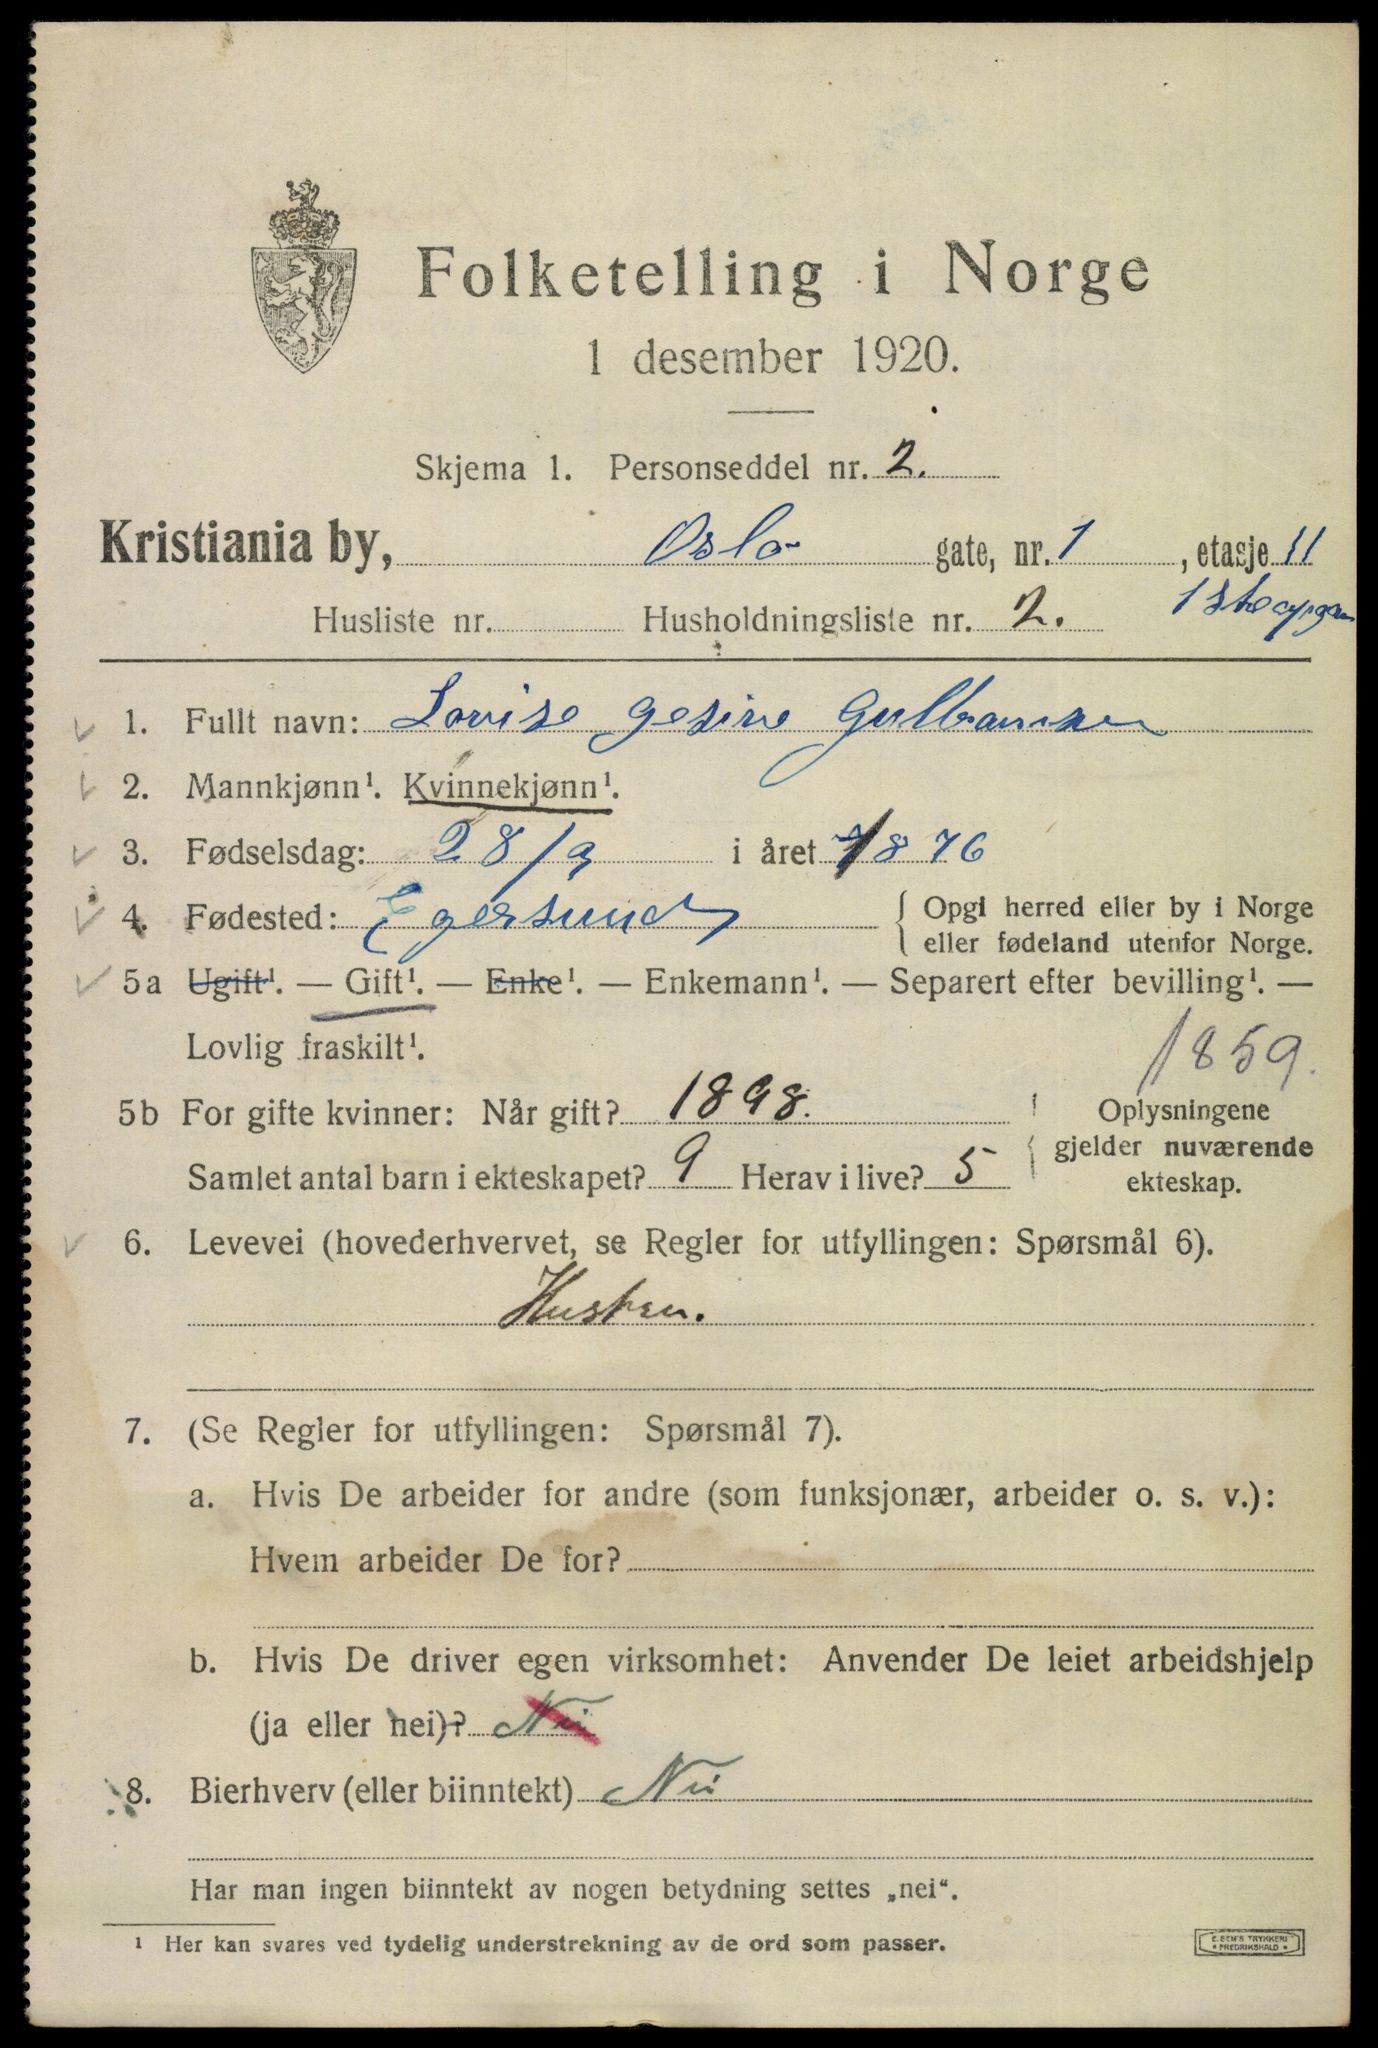 Folketelling i Norge
1 desember 1920.
Skjema 1. Personseddel nr. 2.
Kristiania by, Oslo gate, nr. 1, etasje 11
Husliste nr. Husholdningsliste nr. 2. 1ste opgan
1. Fullt navn: Lovise Gesine Gulbransen
2. Mannkjønn¹. Kvinnekjønn¹.
3. Fødselsdag: 28/9 i året 1876
4. Fødested: Egersund { Opgi herred eller by i Norge
eller fødeland utenfor Norge.
5a Ugift¹. — Gift¹. — Enke¹. — Enkemann¹. — Separert efter bevilling¹. —
Lovlig fraskilt¹. 1859.
5b For gifte kvinner: Når gift? 1898. Oplysningene
gjelder nuværende
Samlet antal barn i ekteskapet? 9 Herav i live? 5 ekteskap.
6. Levevei (hovederhvervet, se Regler for utfyllingen: Spørsmål 6).
Hustru.
7. (Se Regler for utfyllingen: Spørsmål 7).
a. Hvis De arbeider for andre (som funksjonær, arbeider o. s. v.):
Hvem arbeider De for?
b. Hvis De driver egen virksomhet: Anvender De leiet arbeidshjelp
(ja eller nei)? Nei
8. Bierhverv (eller biinntekt) Nei
Har man ingen biinntekt av nogen betydning settes „nei“.
¹ Her kan svares ved tydelig understrekning av de ord som passer.
E. SEM'S TRYKKERI
* FREDRIKSHALD *